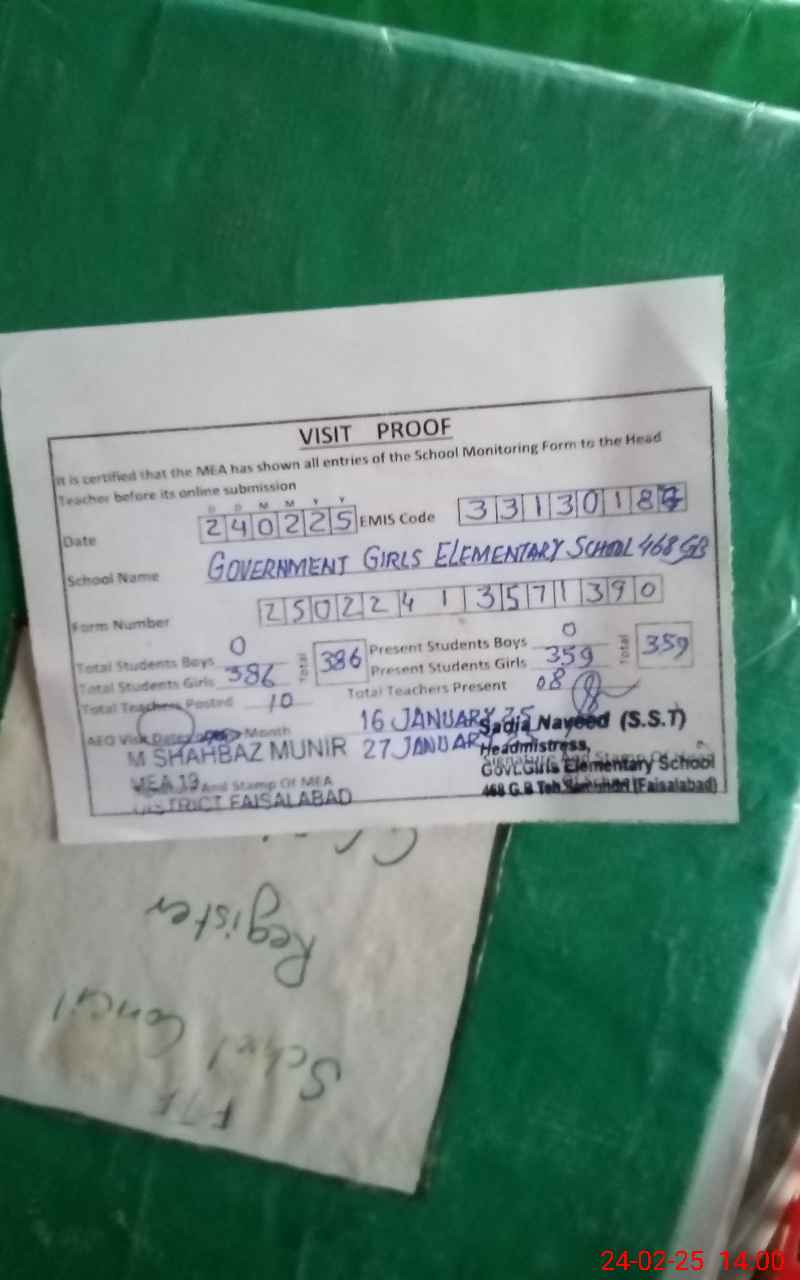 VISIT PROOF
It is certified that the MEA has shown all entries of the School Monitoring Form to the Head
Teacher before its online submission
D D M M Y Y
Date 240225 EMIS Code 3313018
School Name GOVERNMENT GIRLS ELEMENTARY SCHOOL 468 GB
Form Number 25022413571390
Total Students Boys 0 Total 386 Present Students Boys 0 Total 359
Total Students Girls 386 Present Students Girls 359
Total Teachers Posted 10 Total Teachers Present 08
AEO Visit Dates Month 16 JANUARY 25
27 JANUARY
M SHAHBAZ MUNIR
MEA 19 And Stamp Of MEA
DISTRICT FAISALABAD
Sadia Naveed (S.S.T)
Headmistress,
Govt.Girls Elementary School
468 G.B Teh. (Faisalabad)
Register
School Concil
FTF
24-02-25 14:00